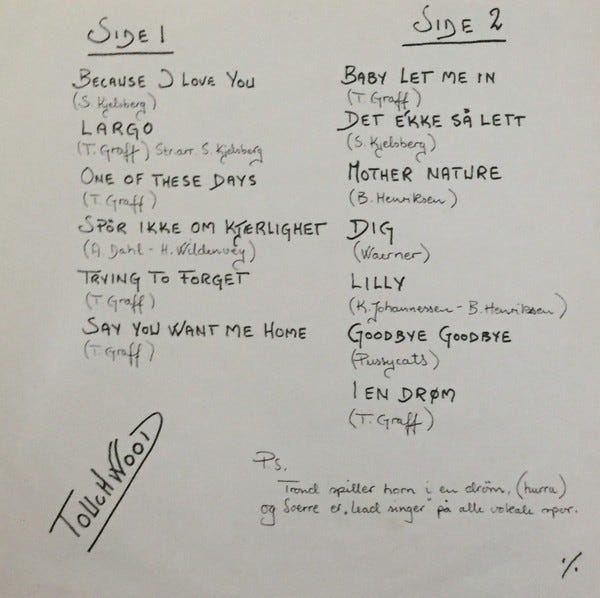 SIDE 1
BECAUSE I LOVE YOU
(S. Kjelsberg)
LARGO
(T. Graff) Str.arr. S. Kjelsberg
ONE OF THESE DAYS
(T. Graff)
SPÖR IKKE OM KJÆRLIGHET
(A. Dahl - H. Wildenvey)
TRYING TO FORGET
(T. Graff)
SAY YOU WANT ME HOME
(T. Graff)
SIDE 2
BABY LET ME IN
(T. Graff)
DET E'KKE SÅ LETT
(S. Kjelsberg)
MOTHER NATURE
(B. Henriksen)
DIG
(Waerner)
LILLY
(K. Johannessen - B. Henriksen)
GOODBYE GOODBYE
(Pussycats)
I EN DRØM
(T. Graff)
TOUCHWOOD
Ps.
Trond spiller horn i en dröm, (hurra)
og Sverre er "Lead singer" på alle vokale spor.
%